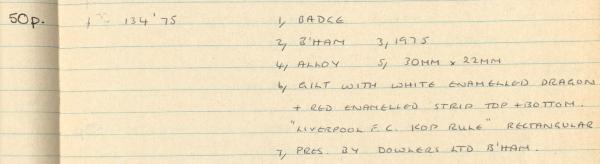 50p. 134'75 1, BADGE
2, B'HAM 3, 1975
4, ALLOY 5, 30MM x 22MM
6, GILT WITH WHITE ENAMELLED DRAGON
+ RED ENAMELLED STRIP TOP + BOTTOM.
"LIVERPOOL F.C. KOP RULE" RECTANGULAR
7, PRES. BY DOWLERS LTD B'HAM.